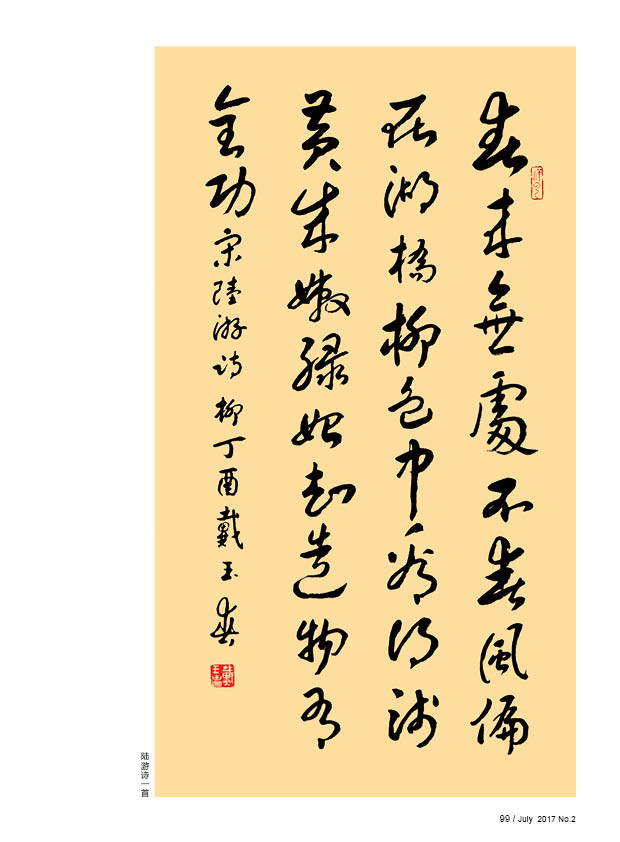 春来無處不春風偏
在湖橋柳色中看得浅
黄成嫩绿始知造物有
全功 宋陸游诗 柳 丁酉戴玉春
陆游诗一首
99 / July 2017 No.2